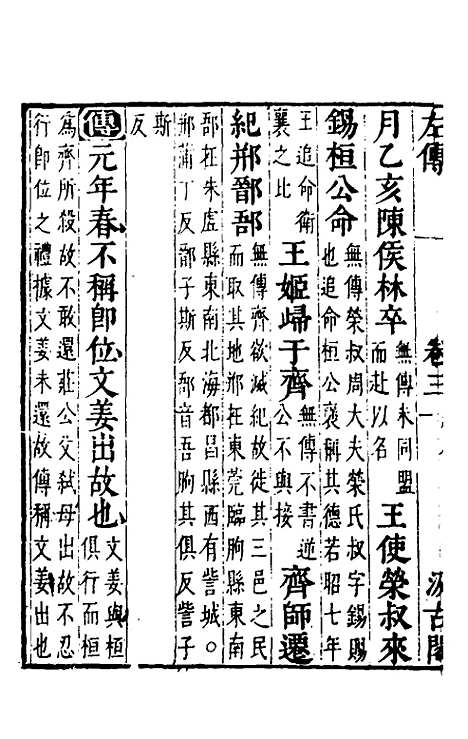 左傳 卷三 汲古閣
月乙亥陳侯林卒無傳未同盟而赴以名王使榮叔來
錫桓公命無傳榮叔周大夫榮氏叔字錫賜也追命桓公褒稱其德若昭七年
王追命衛襄之比王姬歸于齊無傳不書逆公不與接齊師遷
紀郱鄑郚無傳齊欲滅紀故徙其三邑之民而取其地郱在東莞臨朐縣東南
郚在朱虛縣東南北海都昌縣西有訾城。郱蒲丁反鄑子斯反郚音吾朐其俱反訾子
斯反
傳元年春不稱即位文姜出故也文姜與桓俱行而桓
為齊所殺故不敢還莊公父弒母出故不忍行即位之禮據文姜未還故傳稱文姜出也